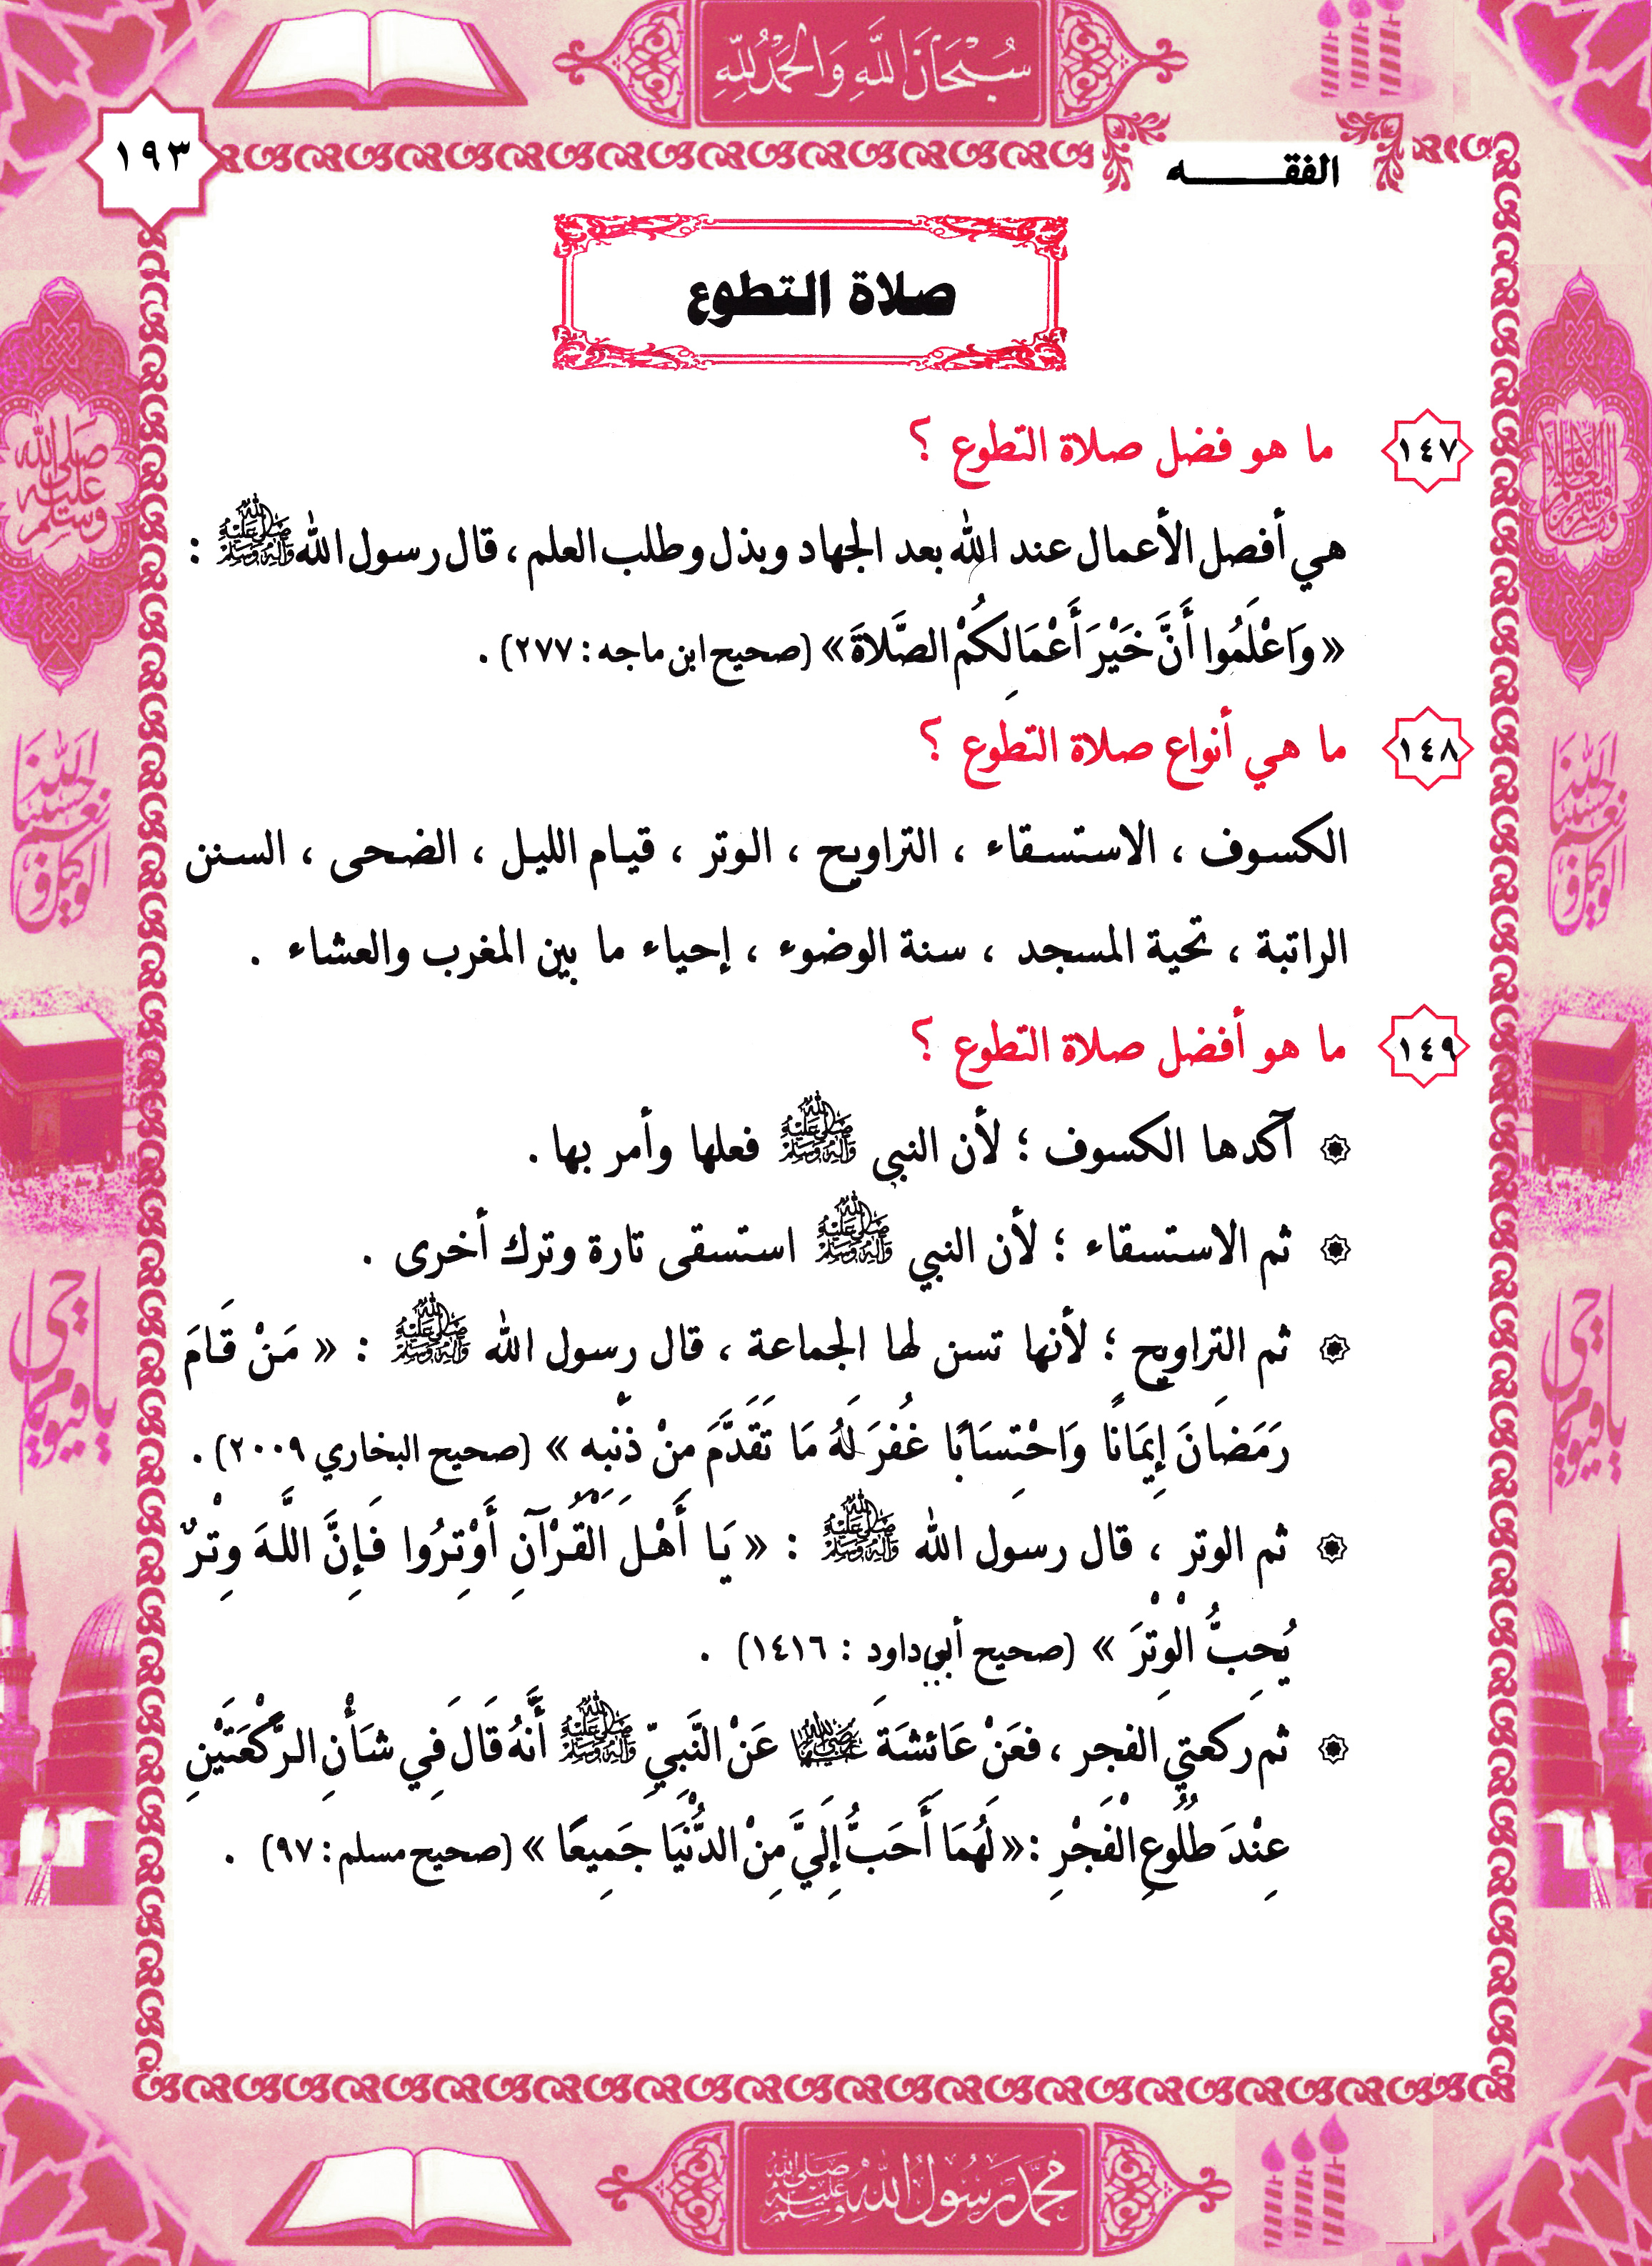 سُبْحَانَ اللَّهِ وَالْحَمْدُ لِلَّهِ
١٩٣
الفقـــــــه
صلاة التطوع
١٤٧ ما هو فضل صلاة التطوع ؟
هي أفصل الأعمال عند الله بعد الجهاد وبذل وطلب العلم ، قال رسول الله ﷺ :
« وَاعْلَمُوا أَنَّ خَيْرَ أَعْمَالِكُمْ الصَّلاةَ » (صحيح ابن ماجه : ٢٧٧) .
١٤٨ ما هي أنواع صلاة التطوع ؟
الكسوف ، الاستسقاء ، التراويح ، الوتر ، قيام الليل ، الضحى ، السنن
الراتبة ، تحية المسجد ، سنة الوضوء ، إحياء ما بين المغرب والعشاء .
١٤٩ ما هو أفضل صلاة التطوع ؟
آكدها الكسوف ؛ لأن النبي ﷺ فعلها وأمر بها .
ثم الاستسقاء ؛ لأن النبي ﷺ استسقى تارة وترك أخرى .
ثم التراويح ؛ لأنها تسن لها الجماعة ، قال رسول الله ﷺ : « مَنْ قَامَ
رَمَضَانَ إِيمَانًا وَاحْتِسَابًا غُفِرَ لَهُ مَا تَقَدَّمَ مِنْ ذَنْبِهِ » (صحيح البخاري ٢٠٠٩) .
ثم الوتر ، قال رسول الله ﷺ : « يَا أَهْلَ الْقُرْآنِ أَوْتِرُوا فَإِنَّ اللَّهَ وِتْرٌ
يُحِبُّ الْوِتْرَ » (صحيح أبي داود : ١٤١٦) .
ثم ركعتي الفجر ، فعَنْ عَائِشَةَ رضي الله عنها عَنْ النَّبِيِّ ﷺ أَنَّهُ قَالَ فِي شَأْنِ الرَّكْعَتَيْنِ
عِنْدَ طُلُوعِ الْفَجْرِ : « لَهُمَا أَحَبُّ إِلَيَّ مِنْ الدُّنْيَا جَمِيعًا » (صحيح مسلم : ٩٧) .
صلى الله عليه وسلم
حسبنا الله ونعم الوكيل
حسبنا الله ونعم الوكيل
يا حي يا قيوم
يا حي يا قيوم
محمد رسول الله صلى الله عليه وسلم